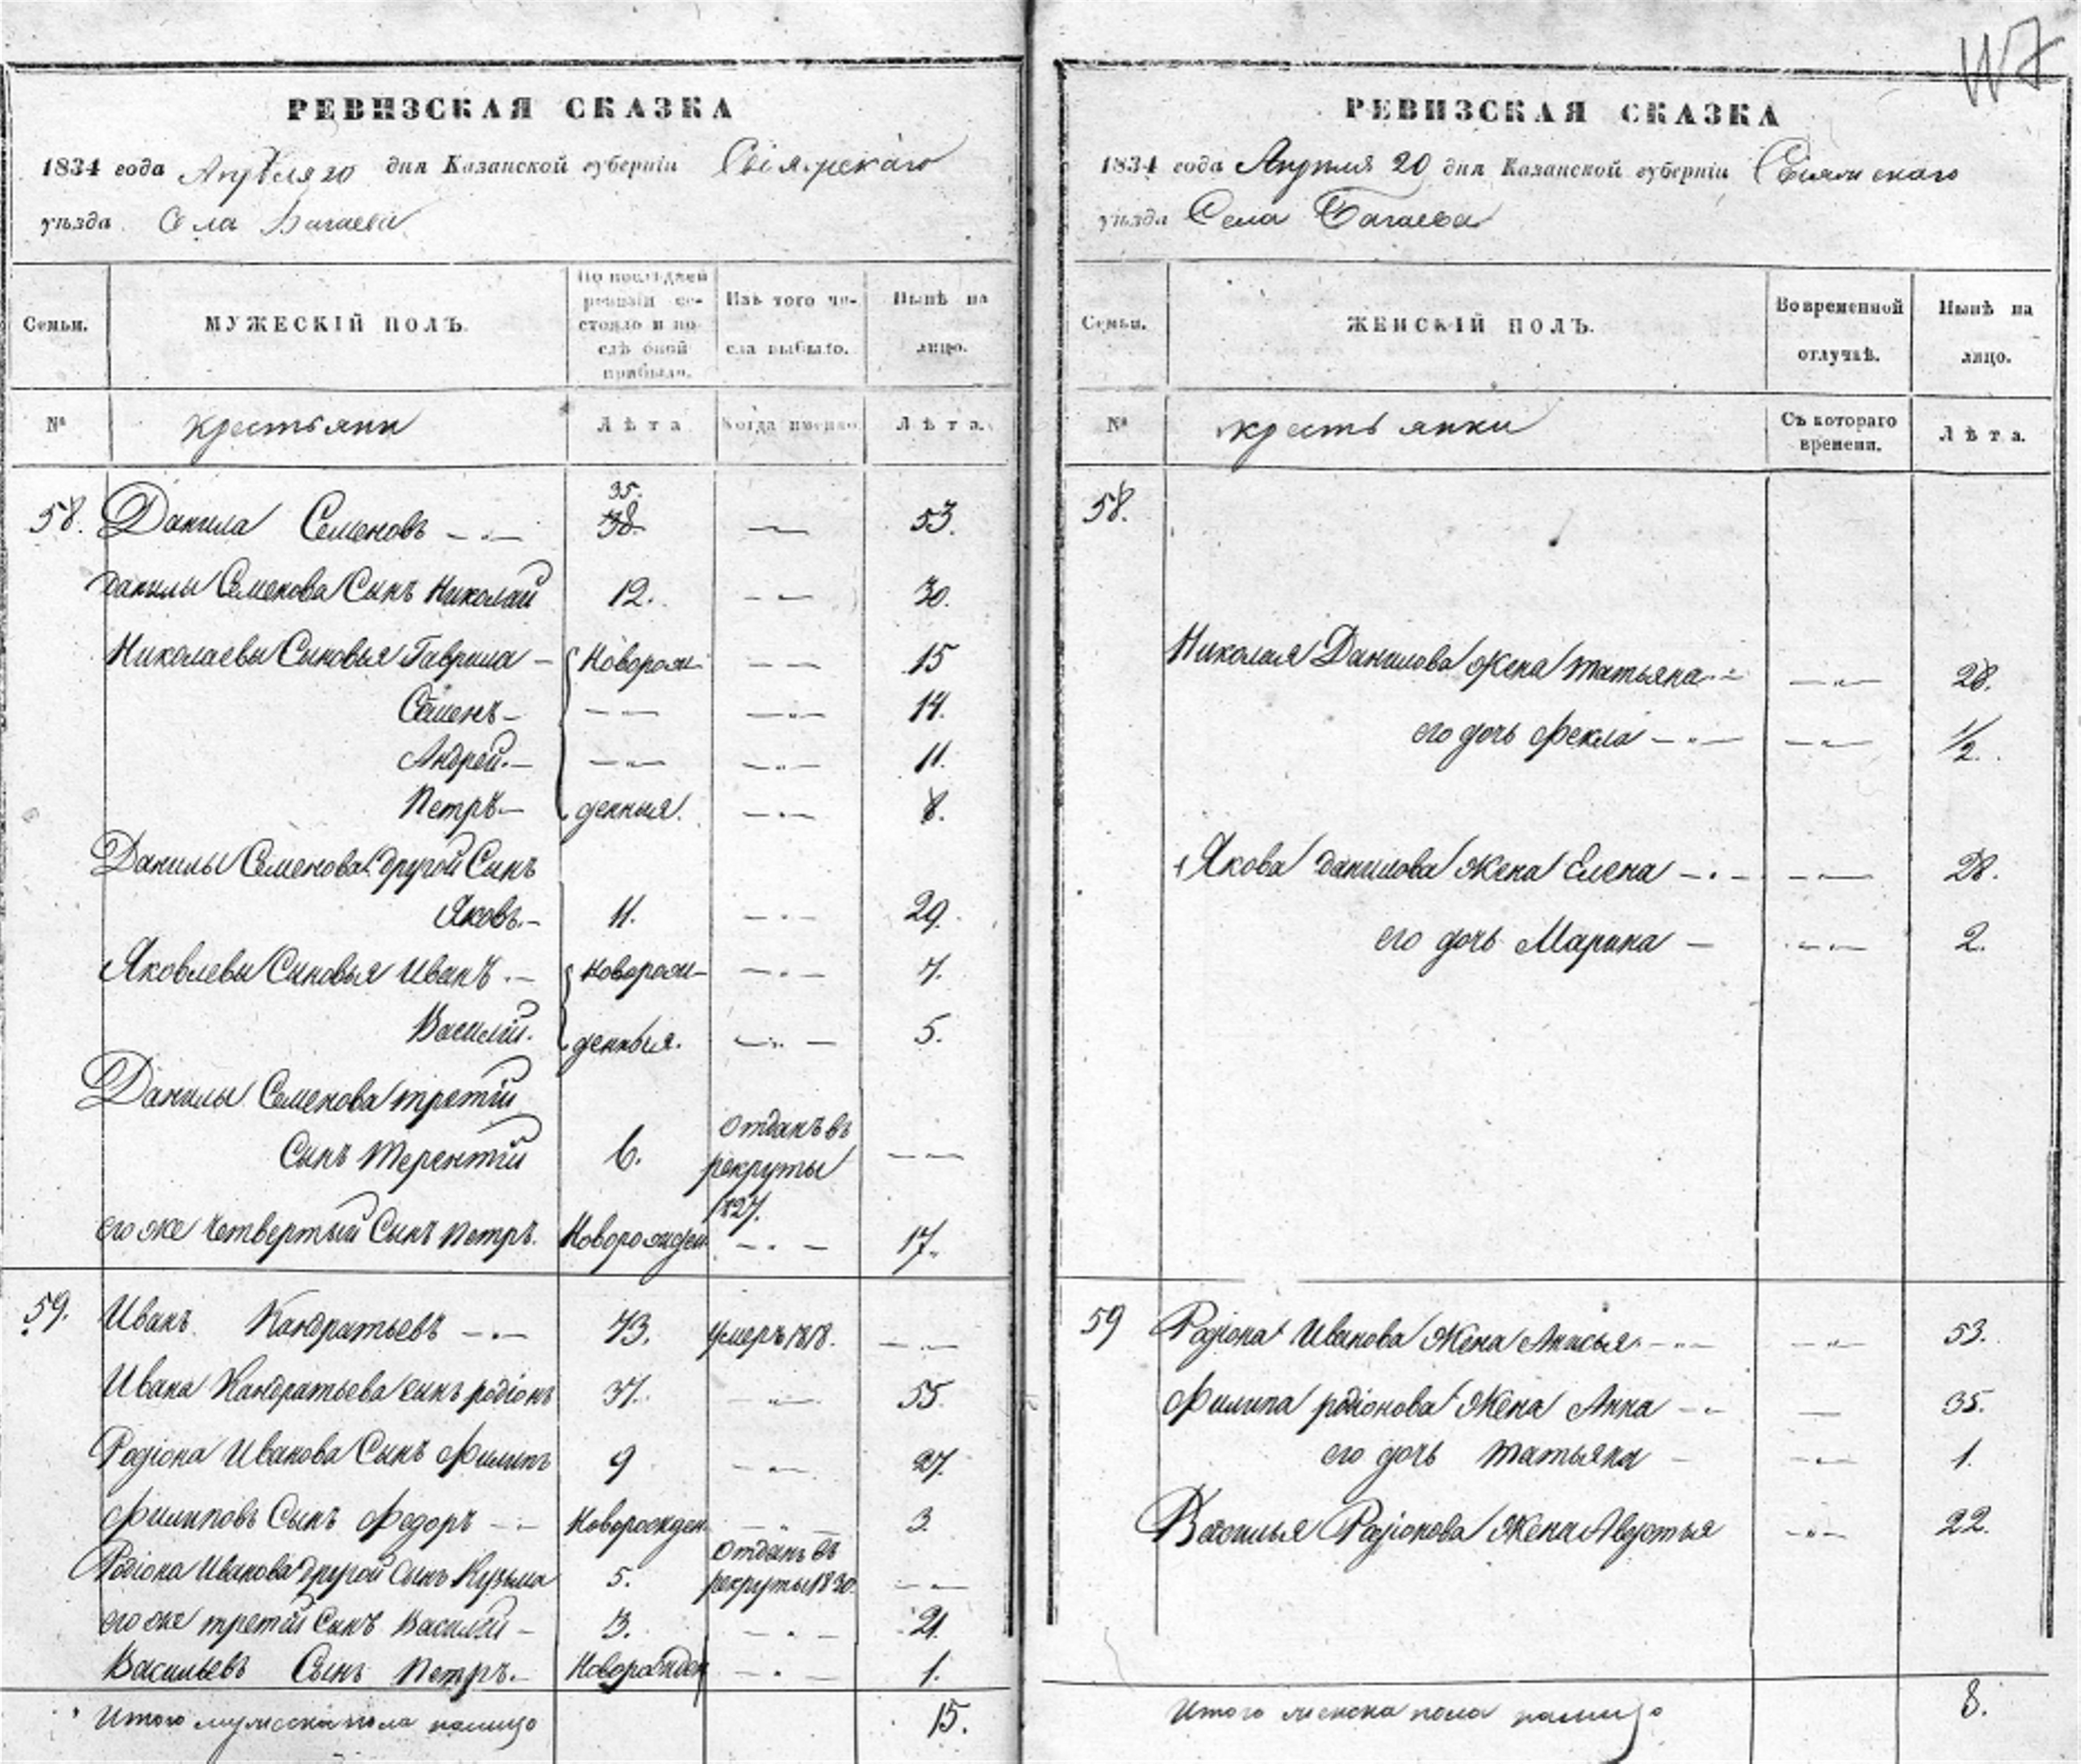 117
РЕВИЗСКАЯ СКАЗКА
1834 года Апреля 20 дня Казанской губерніи Свіяжскаго
уѣзда Села Багаева
Семьи.
МУЖЕСКІЙ ПОЛЪ.
По последней ревизіи состояло и послѣ оной прибыло.
Изъ того числа выбыло.
Нынѣ на лицо.
№
крестьяни
Лѣта
Когда именно
Лѣта.
58. Данила Семеновъ 35. 38. 53.
Данилы Семенова Сынъ Николай 12. 30.
Николаевы Сыновья Гаврила Новорож- 15
Семенъ 14.
Андрей 11.
Петръ денныя. 8.
Данилы Семенова другой Сынъ
Яковъ 11. 29.
Яковлевы Сыновья Иванъ Новорож- 7.
Василій. денныя. 5.
Данилы Семенова третій
Сынъ Терентій 6. Отданъ въ рекруты 1827.
его же четвертый Сынъ Петръ. Новорожден 17.
59. Иванъ Кандратьевъ 73. умеръ 1818.
Ивана Кандратьева сынъ родіонъ 37. 55.
Родіона Иванова Сынъ Филипъ 9 27.
Филиповъ Сынъ Федоръ Новорожден 3.
Родіона Иванова другой Сынъ Кузьма 5. Отданъ въ рекруты 1830.
его же третій Сынъ Василій 3. 21.
Васильевъ Сынъ Петръ. Новорожден 1.
Итого мужеска пола налицо 15.
РЕВИЗСКАЯ СКАЗКА
1834 года Апреля 20 дня Казанской губерніи Свіяжскаго
уѣзда Села Багаева
Семьи.
ЖЕНСКІЙ ПОЛЪ.
Во временной отлучкѣ.
Нынѣ на лицо.
№
крестьянки
Съ котораго времени.
Лѣта.
58.
Николая Данилова Жена Татьяна 28.
его дочь Фекла 1/2.
Якова Данилова Жена Елена 28.
его дочь Марина 2.
59 Родіона Иванова Жена Анисья 53.
Филипа родіонова Жена Анна 35.
его дочь Татьяна 1.
Василья Родіонова Жена Авдотья 22.
Итого женска пола налицо 8.